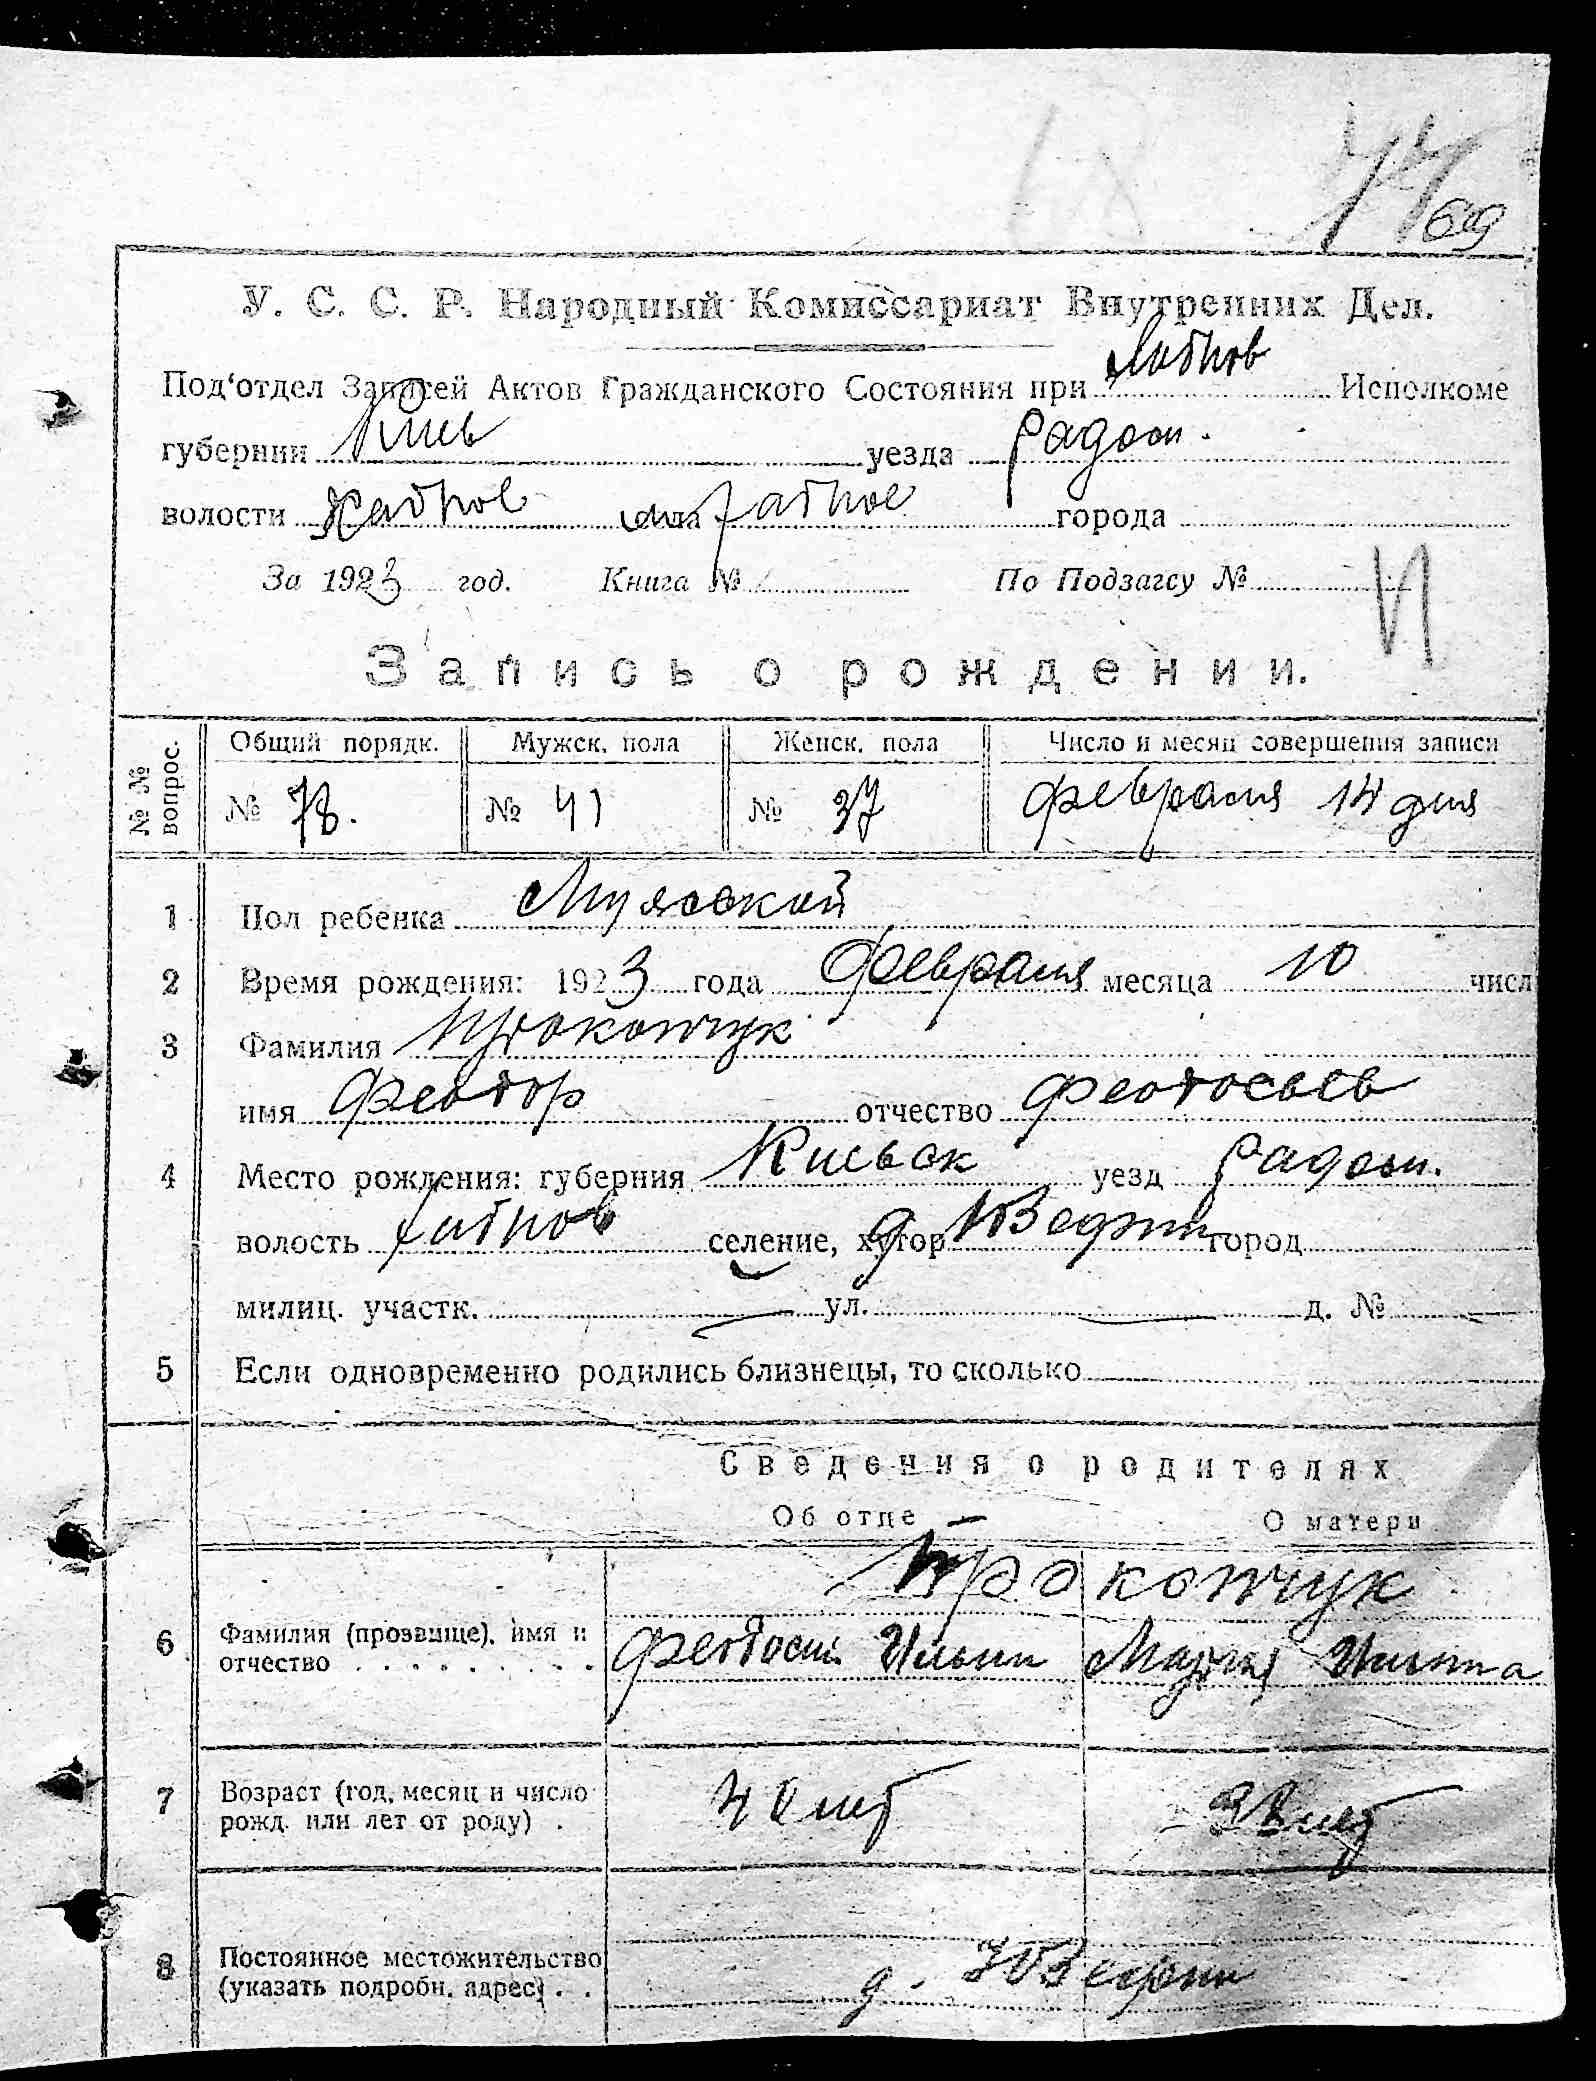 69
У. С. С. Р. Народный Комиссариат Внутренних Дел.
Под‘отдел Записей Актов Гражданского Состояния при Хабнов Исполкоме
губернии Киев уезда Радом.
волости Хабное села Хабное города
За 1923 год. Книга № По Подзагсу №
Запись о рождении.
№ № вопрос. Общий порядк. Мужск. пола Женск. пола Число и месяц совершения записи
№ 78. № 41 № 37 Февраля 14 дня
1 Пол ребенка Мужской
2 Время рождения: 1923 года Февраля месяца 10 числ
3 Фамилия Прокопчук
имя Феодор отчество Феодосьев
4 Место рождения: губерния Киевск уезд Радом.
волость Хабнов селение, хутор д. город
милиц. участк. — ул. — д. № —
5 Если одновременно родились близнецы, то сколько
Сведения о родителях
Об отце О матери
Прокопчук
6 Фамилия (прозвище), имя и
отчество . . . . . . . . . Феодосий Ильин Мария Ильина
7 Возраст (год, месяц и число
рожд. или лет от роду) . 40 лет 38 лет
8 Постоянное местожительство
(указать подробн. адрес) . . д.